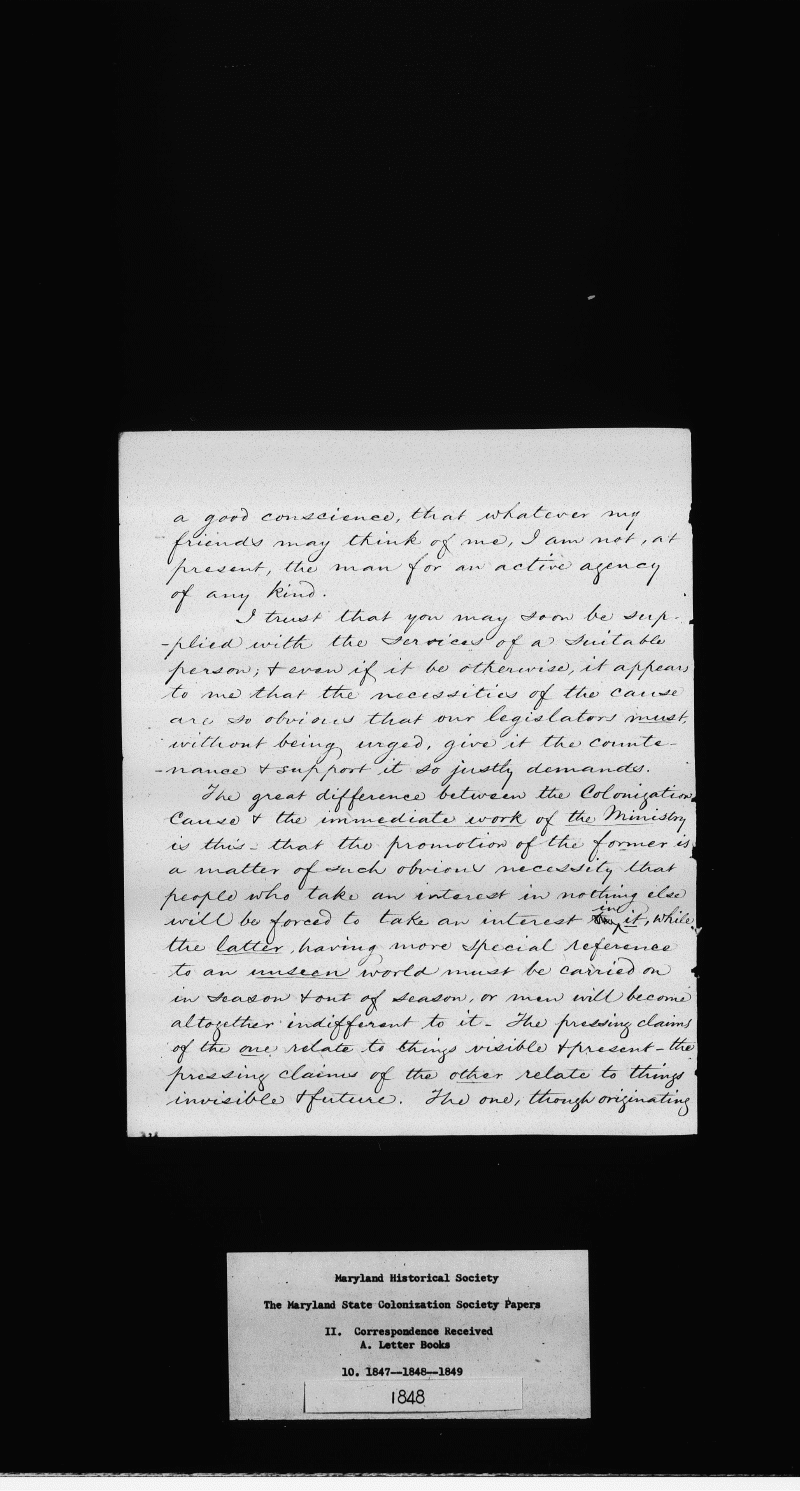 a good conscience, that whatever my
friends may think of me, I am not, at
present, the man for an active agency
of any kind.
I trust that you may soon be sup-
-plied with the services of a suitable
person; & even if it be otherwise, it appears
to me that the necessities of the cause
are so obvious that our legislators must,
without being urged, give it the counte-
-nance & support it so justly demands.
The great difference between the Colonization
Cause & the immediate work of the Ministry
is this - that the promotion of the former is
a matter of such obvious necessity that
people who take an interest in nothing else
will be forced to take an interest in it, while
the latter, having more special reference
to an unseen world must be carried on
in season & out of season, or men will become
altogether indifferent to it - The pressing claims
of the one relate to things visible & present - the
pressing claims of the other relate to things
invisible & future. The one, though originating
Maryland Historical Society
The Maryland State Colonization Society Papers
II. Correspondence Received
A. Letter Books
10. 1847--1848--1849
1848